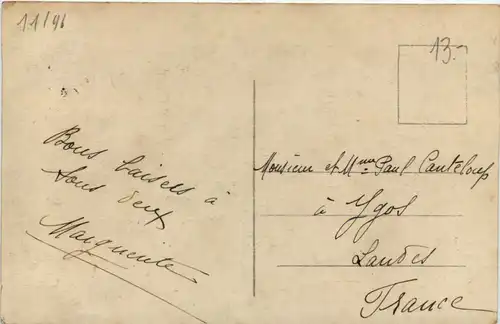 11/96
13.-
Bons baisers à
tous deux
Marguerite
Monsieur et Mme Paul Canteloup
à Ygos
Landes
France